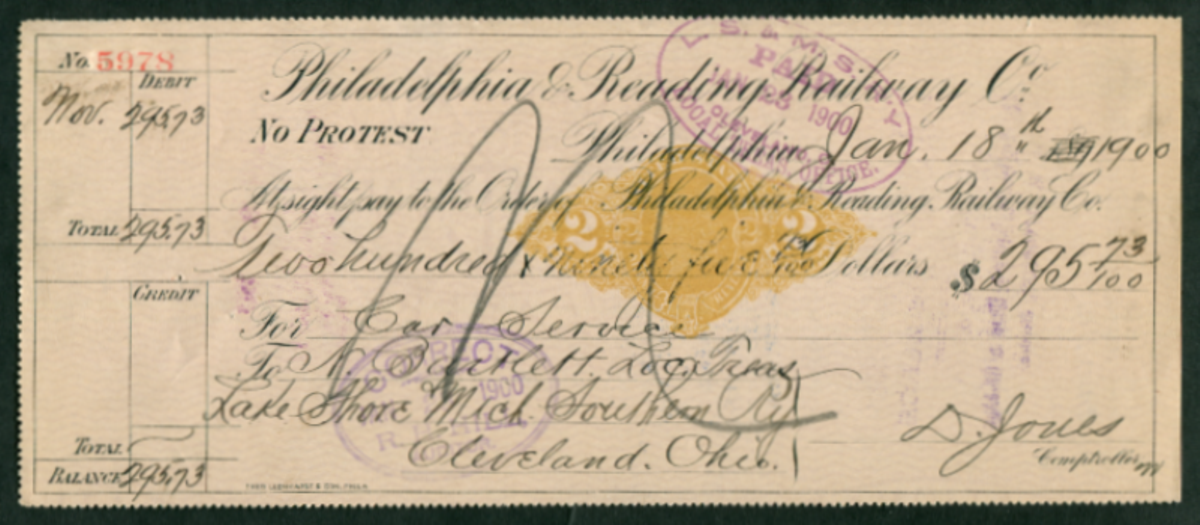 No. 5978
DEBIT
Nov. 295.73
TOTAL 295.73
CREDIT
TOTAL
BALANCE 295.73
Philadelphia & Reading Railway Co.
NO PROTEST
Philadelphia Jan. 18th 1900
At sight pay to the Order of Philadelphia & Reading Railway Co.
Two hundred & ninety five & 73/100 Dollars $295 73/100
For Car Service
To N. Bartlett, Loc. Treas
Lake Shore Mich. Southern Ry
Cleveland. Ohio.
D. Jones
Comptroller
L. S. & M. S. R'Y
PAID
JAN 23 1900
CLEVELAND, O.
LOCAL OFFICE.
2 2
CORRECT
1900